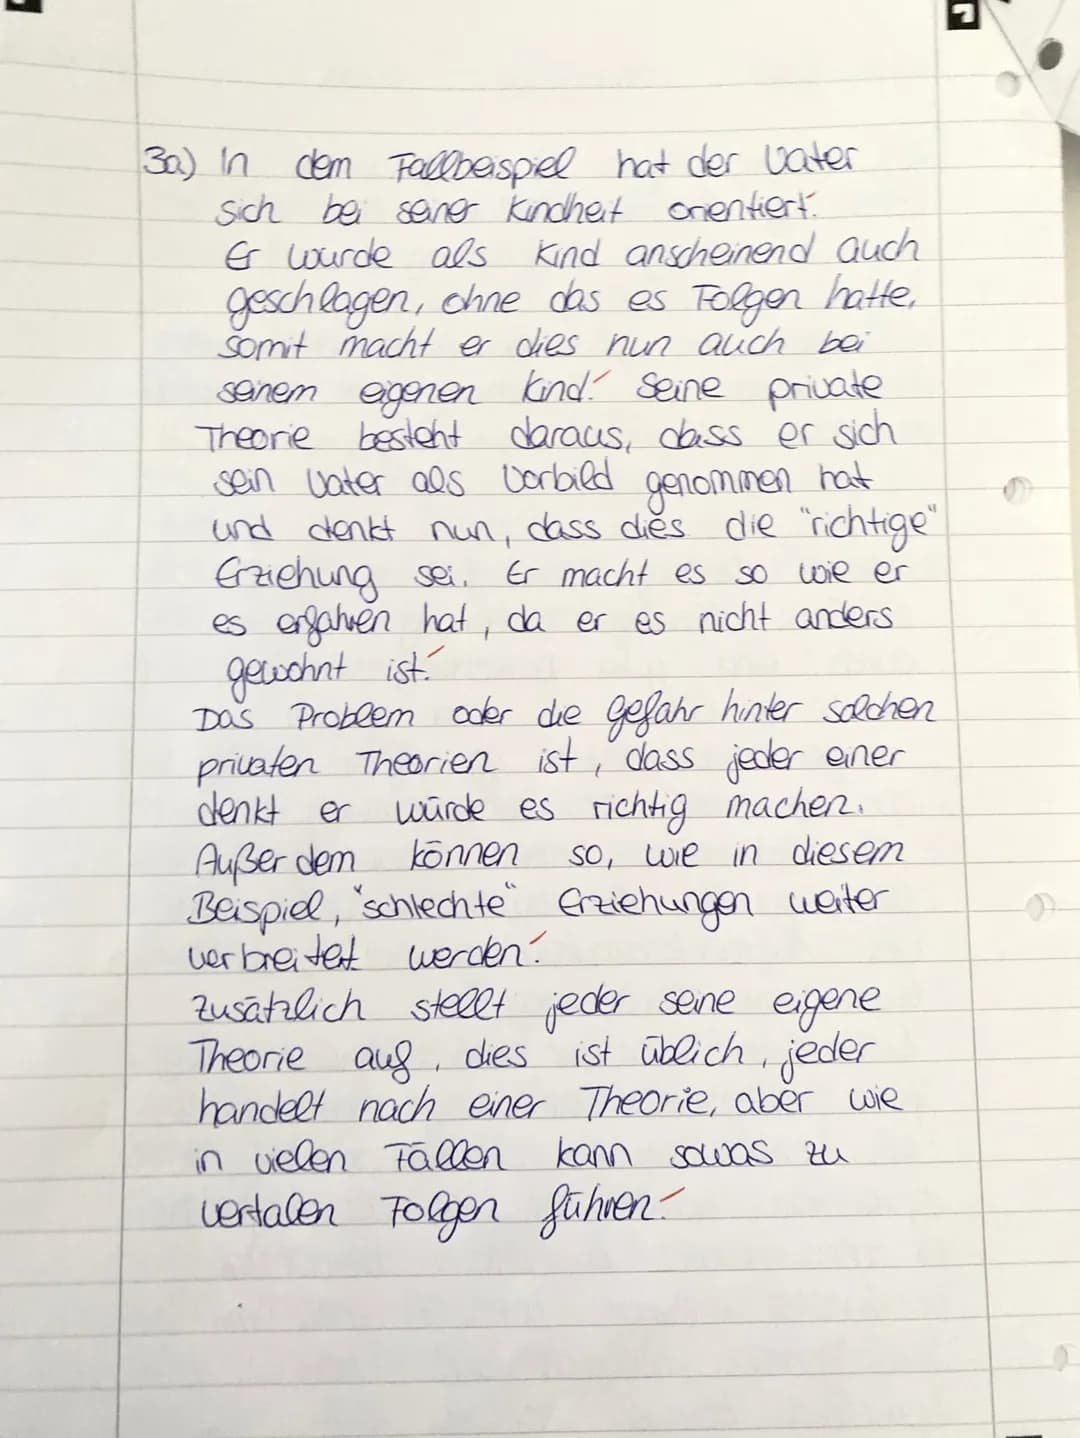 3a) In dem Fallbeispiel hat der Vater
sich bei seiner Kindheit orientiert.
Er wurde als Kind anscheinend auch
geschlagen, ohne das es Folgen hatte,
somit macht er dies nun auch bei
seinem eigenen Kind. Seine private
Theorie besteht daraus, dass er sich
sein Vater als Vorbild genommen hat
und denkt nun, dass dies die "richtige"
Erziehung sei. Er macht es so wie er
es erfahren hat, da er es nicht anders
gewohnt ist.
Das Problem oder die Gefahr hinter solchen
privaten Theorien ist, dass jeder einer
denkt er würde es richtig machen.
Außer dem können so, wie in diesem
Beispiel, "schlechte" Erziehungen weiter
verbreitet werden.
Zusätzlich stellt jeder seine eigene
Theorie auf, dies ist üblich, jeder
handelt nach einer Theorie, aber wie
in vielen Fällen kann sowas zu
vertalen Folgen führen.